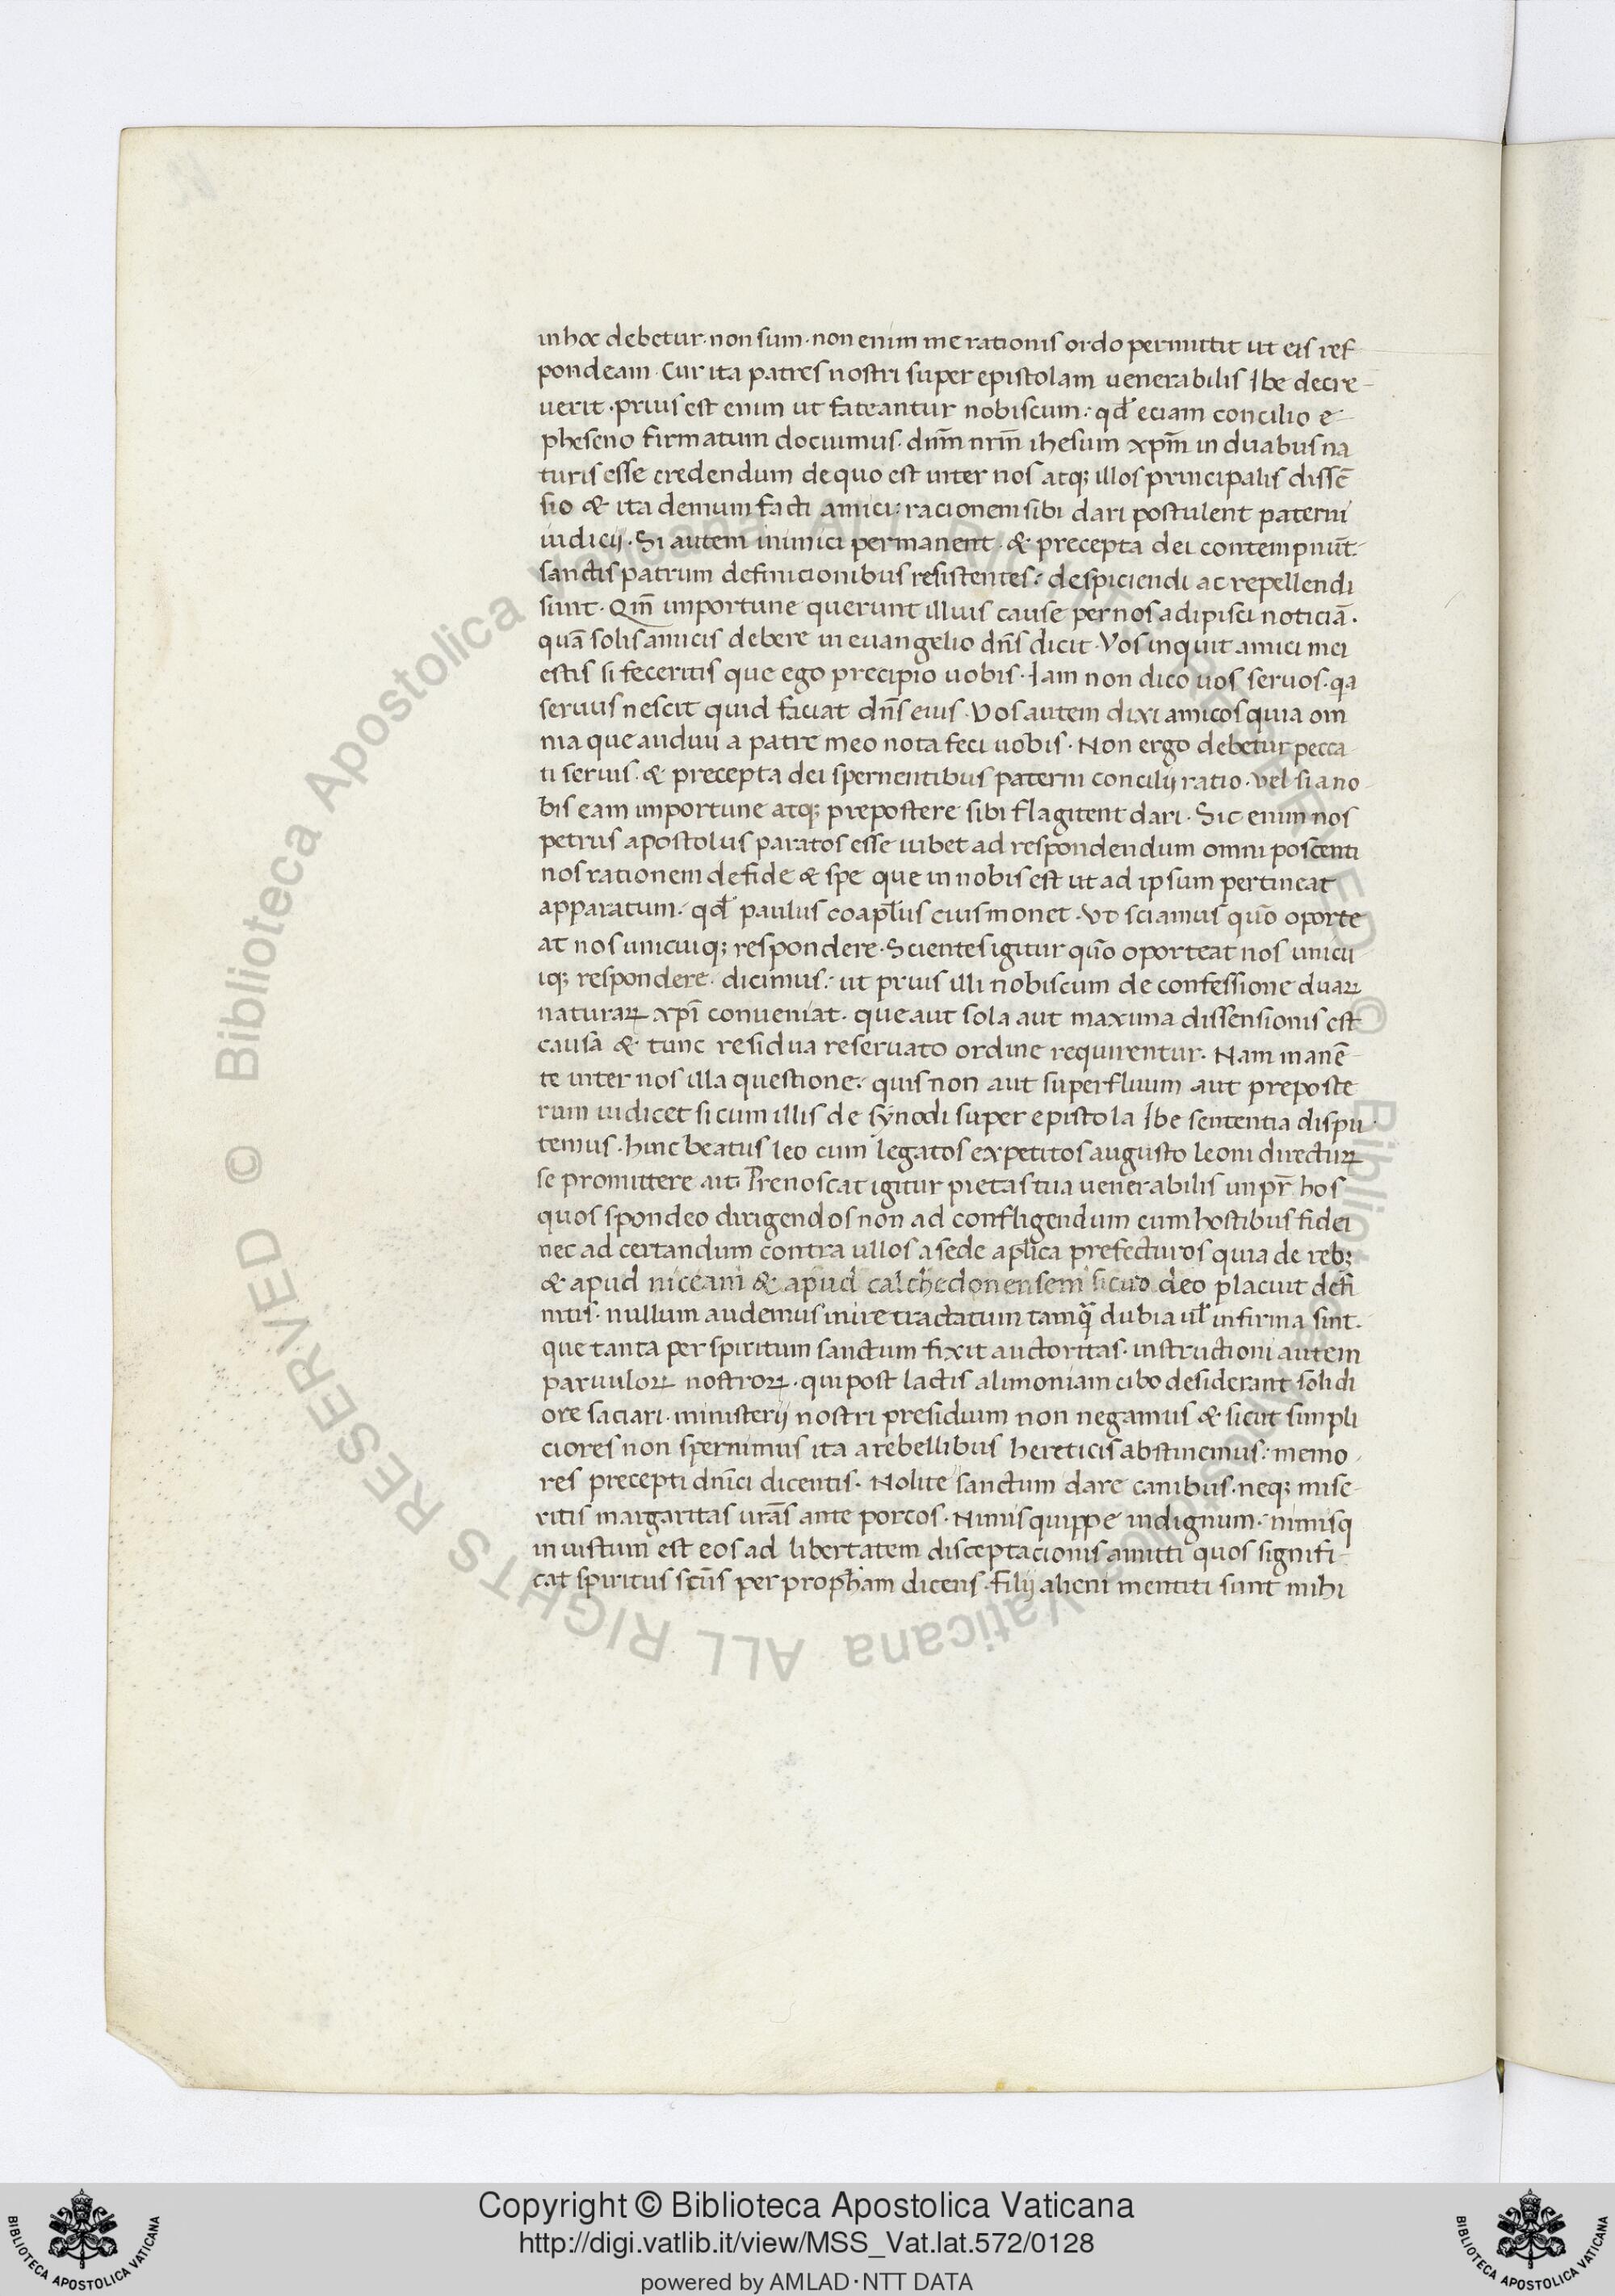 in hoc debetur. non sum. non enim me rationis ordo permittit ut eis ref
pondeam. Cur ita patres nostri super epistolam uenerabilis Ibe decre-
uerit. prius est enim ut fateantur nobiscum: qd̄ eciam concilio e-
pheseno firmatum docuimus. dnm̄ nrm̄ ihesum xpm̄ in duabus na
turis esse credendum de quo est inter nos atq; illos principalis dissē
sio & ita demum facti amici: racionem sibi dari postulent paterni
iudicij. Si autem inimici permanent. & precepta dei contempnūt.
sanctis patrum definicionibus resistentes: despiciendi ac repellendi
sunt. Qm̄ importune querunt illius cause per nos adipisci noticiā.
quā solis amicis debere in euangelio dn̄s dicit. Vos inquit amici mei
estis si feceritis que ego precipio uobis. Iam non dico uos seruos. qa
seruus nescit quid faciat dn̄s eius. Vos autem dixi amicos quia om
nia que audiui a patre meo nota feci uobis. Non ergo debetur pecca-
ti seruis. & precepta dei spernentibus paterni concilij ratio. vel si a no-
bis eam importune atq; prepostere sibi flagitent dari. Sic enim nos
petrus apostolus paratos esse iubet ad respondendum omni poscenti
nos rationem de fide & spe que in nobis est ut ad ipsum pertineat
apparatum. qd̄ paulus coapl̄us eius monet. Vt sciamus quō oporte
at nos unicuiq; respondere. Scientes igitur quō oporteat nos unicu
iq; respondere. dicimus: ut prius illi nobiscum de confessione duaꝝ
naturaꝝ xpī conueniat. que aut sola aut maxima dissensionis est
causa & tunc residua reseruato ordine requirentur. Nam manē-
te inter nos illa questione. quis non aut superfluum aut preposte
rum iudicet si cum illis de synodi super epistola Ibe sententia dispu-
temus. hinc beatus leo cum legatos expetitos augusto leoni directuꝝ
se promittere ait. Prenoscat igitur pietas tua uenerabilis impr̄ hos
quos spondeo dirigendos non ad confligendum cum hostibus fidei
nec ad certandum contra ullos a sede apl̄ica profecturos quia de reb;
& apud niceam & apud calchedonensem sicuo deo placuit defi
nitis. nullum audemus inire tractatum tamq̄ dubia ul̄ infirma sint.
que tanta per spiritum sanctum fixit auctoritas. instructioni autem
paruuloꝝ nostroꝝ. qui post lactis alimoniam cibo desiderant solidi
ore saciari. ministerij nostri presidium non negamus & sicut simpli
ciores non spernimus ita a rebellibus hereticis abstinemus: memo-
res precepti dn̄ici dicentis. Nolite sanctum dare canibus. neq; mise-
ritis margaritas urās ante porcos. Nimis quippe indignum. nimisq
iniustum est eos ad libertatem disceptacionis amitti quos signifi-
cat spiritus scūs per proph̄am dicens. Filij alieni mentiti sunt mihi
Copyright © Biblioteca Apostolica Vaticana
http://digi.vatlib.it/view/MSS_Vat.lat.572/0128
powered by AMLAD·NTT DATA